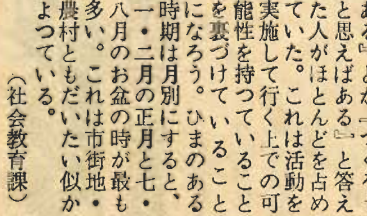 と思えばある』と答え
た人がほとんどを占め
ていた。これは活動を
実施して行く上での可
能性を持つていること
を裏づけていること
になろう。ひまのある
時期は月別にすると、
一・二月の正月と七・
八月のお盆の時が最も
多い。これは市街地・
農村ともだいたい似か
よつている。
（社会教育課）